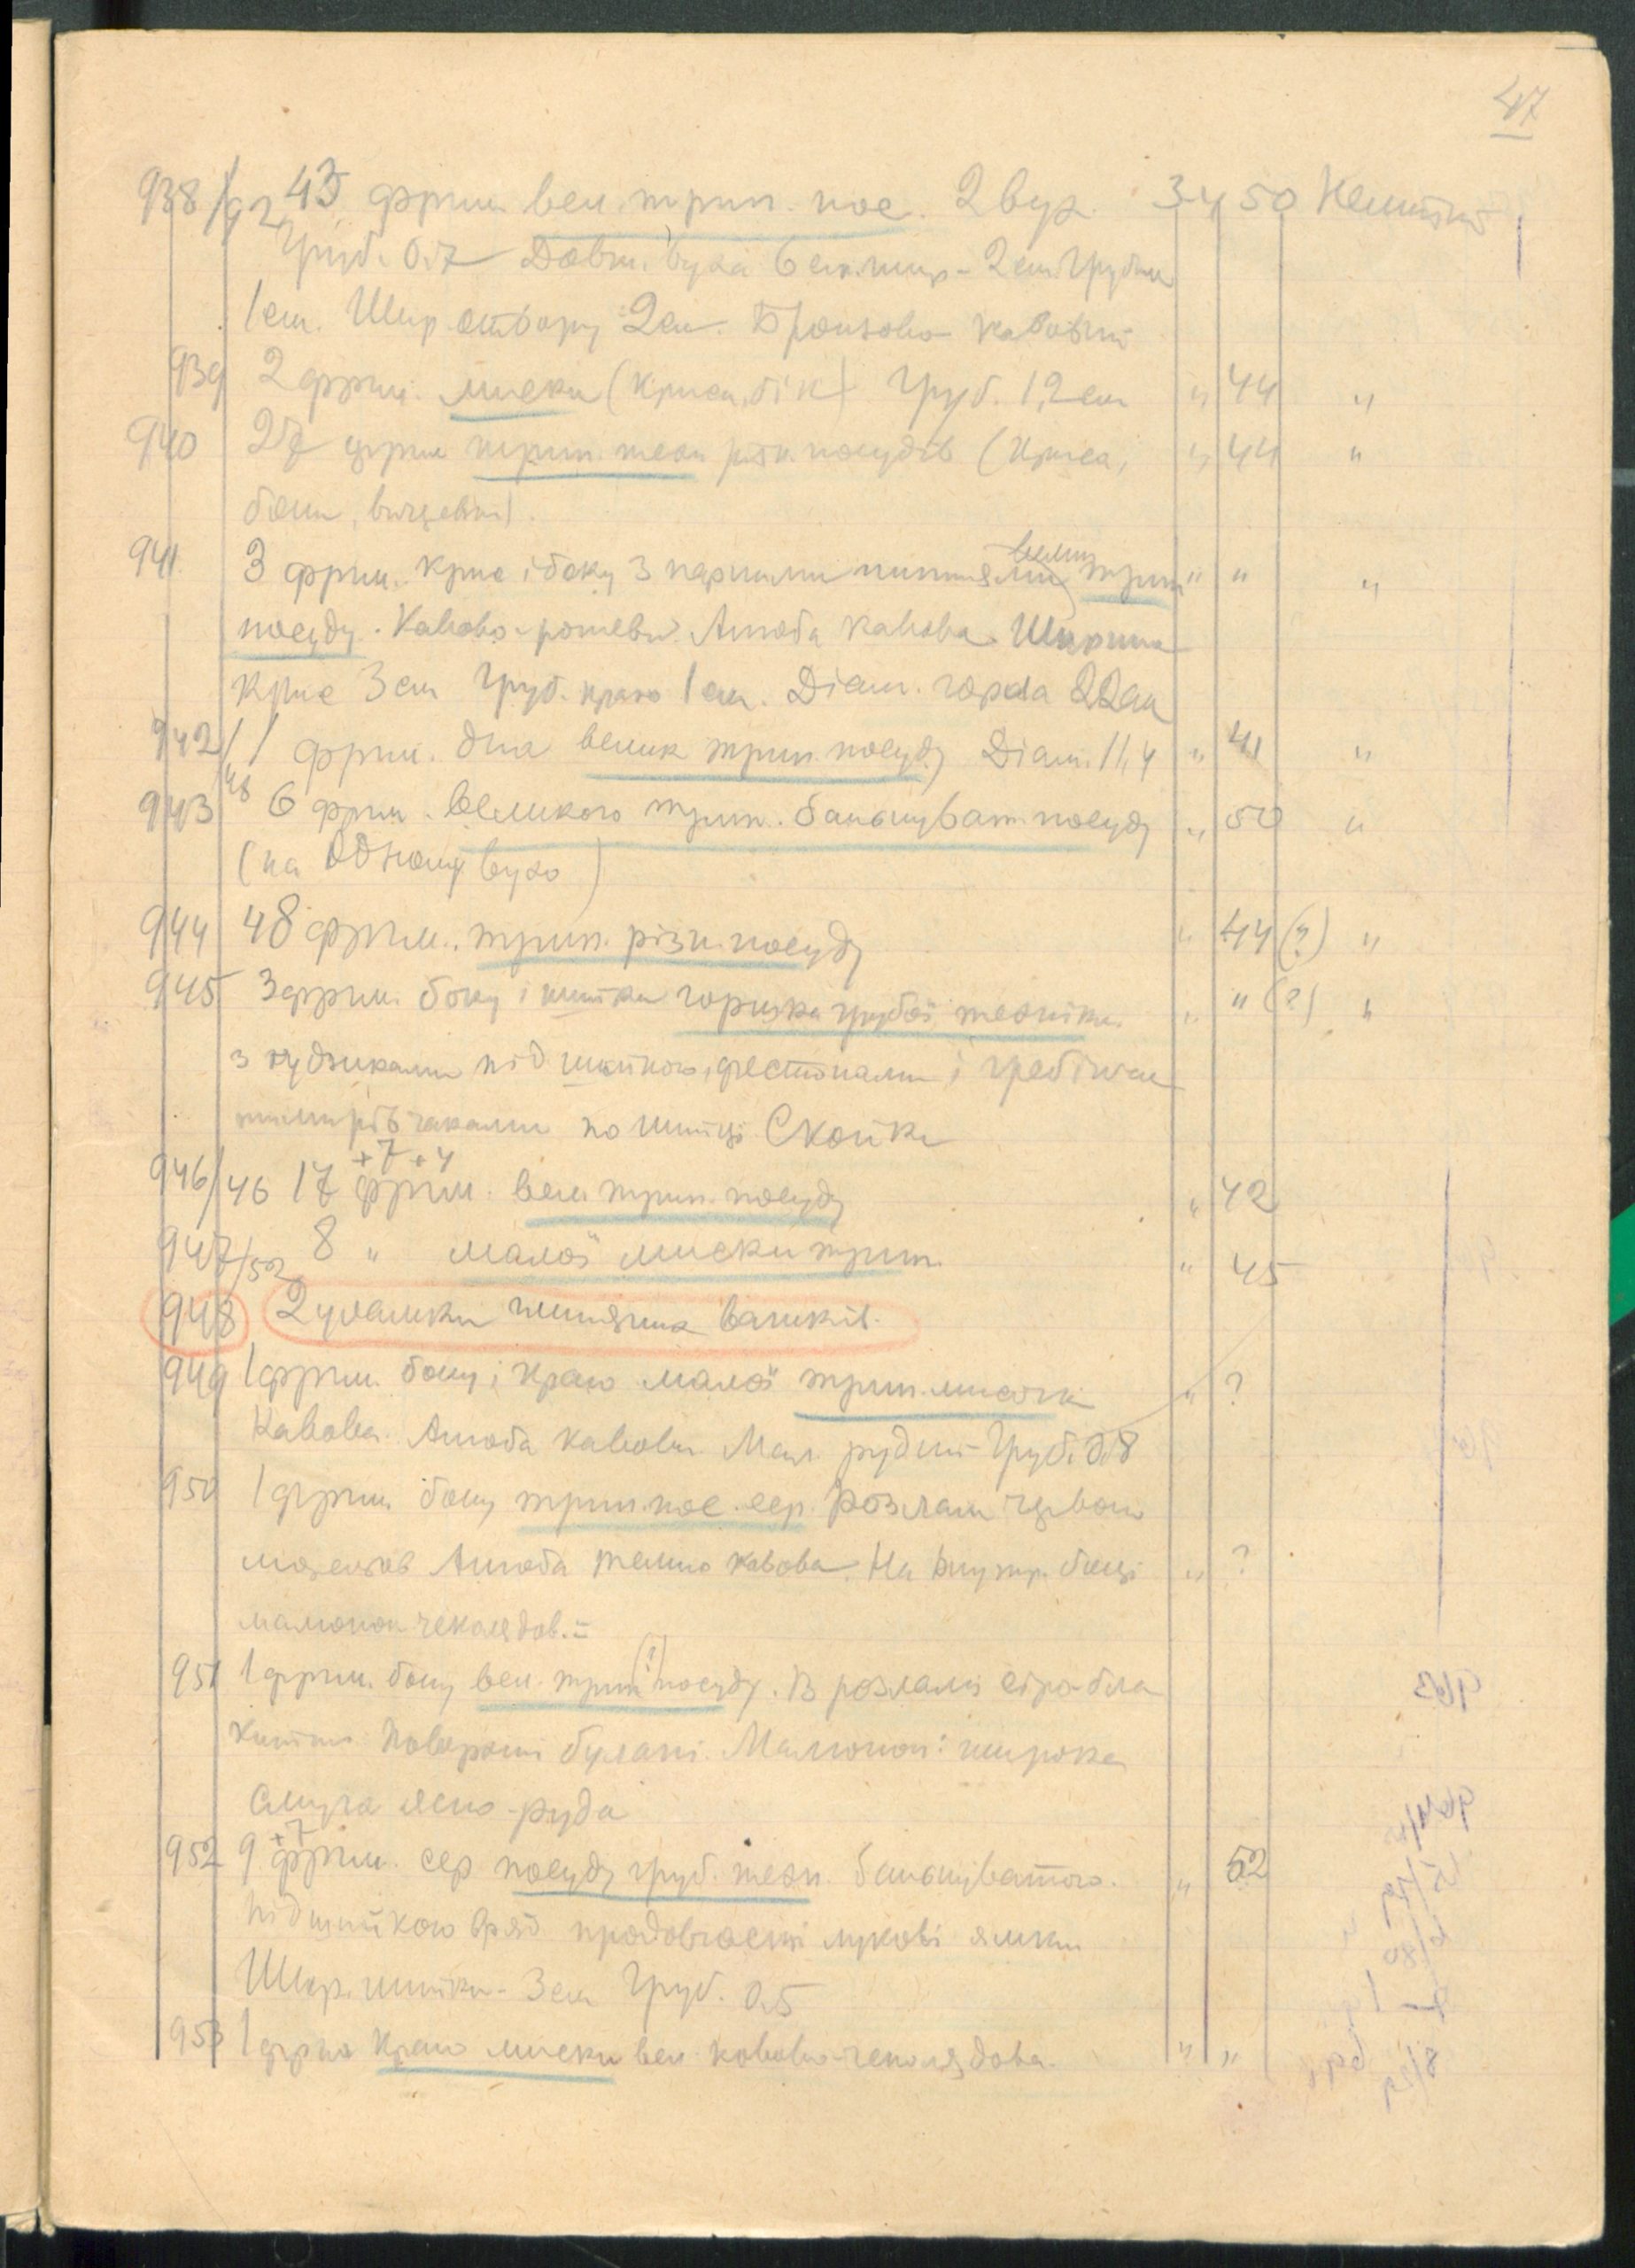 47
938/92 43 фрагм. вел. трип. пос. 2 вух. 34 50
Груб. 0.7 Довж. вуха 6 см. шир - 2 см. Грубин
1 см. Шир. отвору 2 см. Бронзово-кавовий
939 2 фрагм. миски (криси, бік) Груб. 1,2 см " 44 "
940 27 фрагм трип. техн різн. посудів (криса, " 44 "
боки, вінцевин).
941 3 фрагм. крис і боку з парними велик трип " " "
посуду. Кавово-рожеви. Ангоба кавова. Ширина
крис 3 см Груб. краю 1 см. Діам. горла 22 см
942/48 1 фрагм. дна велик трип. посуду Діам. 11,4 " 41 "
943 6 фрагм. великого трип. баньчуват. посуду " 50 "
(на одному вухо)
944 48 фрагм. трип. різн. посуду " 44 (?) "
945 3 фрагм. боку і шийки горщка грубої техніки. " " (?) "
з гудзиками під шийкою, фестонами і гребінча
тими рівчаками по шийці Скойки
946/46 17 +7 +4 фрагм. вел. трип. посуду " 42
947/52 8 " малої миски трип. " 45
948 2 уламки глиняних вальків.
949 1 фрагм. боку і краю малої трип. мисочк " ?
Кавова. Ангоба кавова. Мал. рудий Груб. 0.8
950 1 фрагм боку трип. пос. сер. Розлам червон
Ангоба темно кавова. На внутр. боці " ?
малюнок чеколядов.
951 1 фрагм. боку вел. трип (?) посуду. В розламі сіро-бла
китн. Поверхні булані. Малюнок: широка
смуга ясно-руда
952 9 +7 фрагм. сер посуду груб. техн. баньчуватого. " 52
Під шийкою вряд продовгасті ямки
Шир. шийки - 3 см Груб. 0.5
953 1 фрагм краю миски вел. кавово-чеколядова. " "